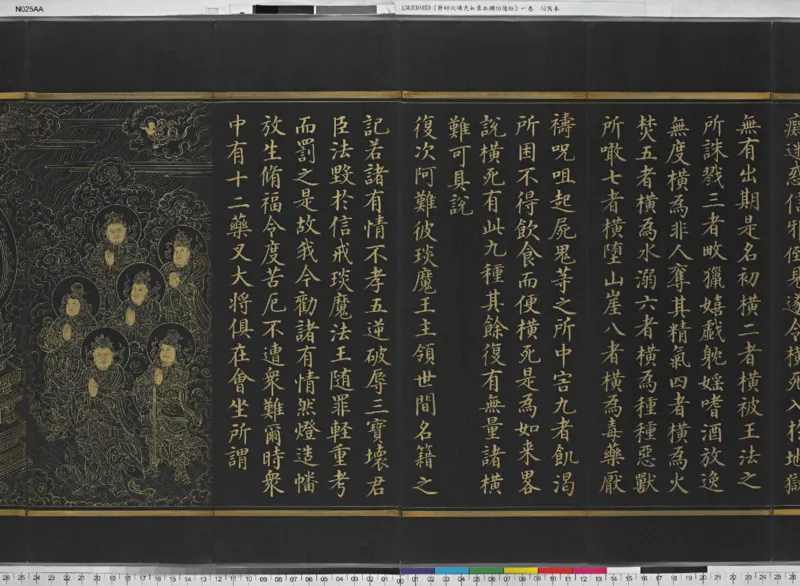 N025AA
《藥師琉璃光如來本願功德經》一卷
癡迷惑信邪倒見遂令橫死入於地獄
無有出期是名初橫二者橫被王法之
所誅戮三者畋獵嬉戲躭婬嗜酒放逸
無度橫為非人奪其精氣四者橫為火
焚五者橫為水溺六者橫為種種惡獸
所噉七者橫墮山崖八者橫為毒藥厭
禱呪咀起屍鬼等之所中害九者飢渴
所困不得飲食而便橫死是為如来畧
說橫死有此九種其餘復有無量諸橫
難可具說
復次阿難彼琰魔王主領世間名籍之
記若諸有情不孝五逆破辱三寶壞君
臣法毀於信戒琰魔法王随罪輕重考
而罰之是故我今勸諸有情然燈造幡
放生脩福令度苦厄不遭衆難爾時衆
中有十二藥叉大將俱在會坐所謂